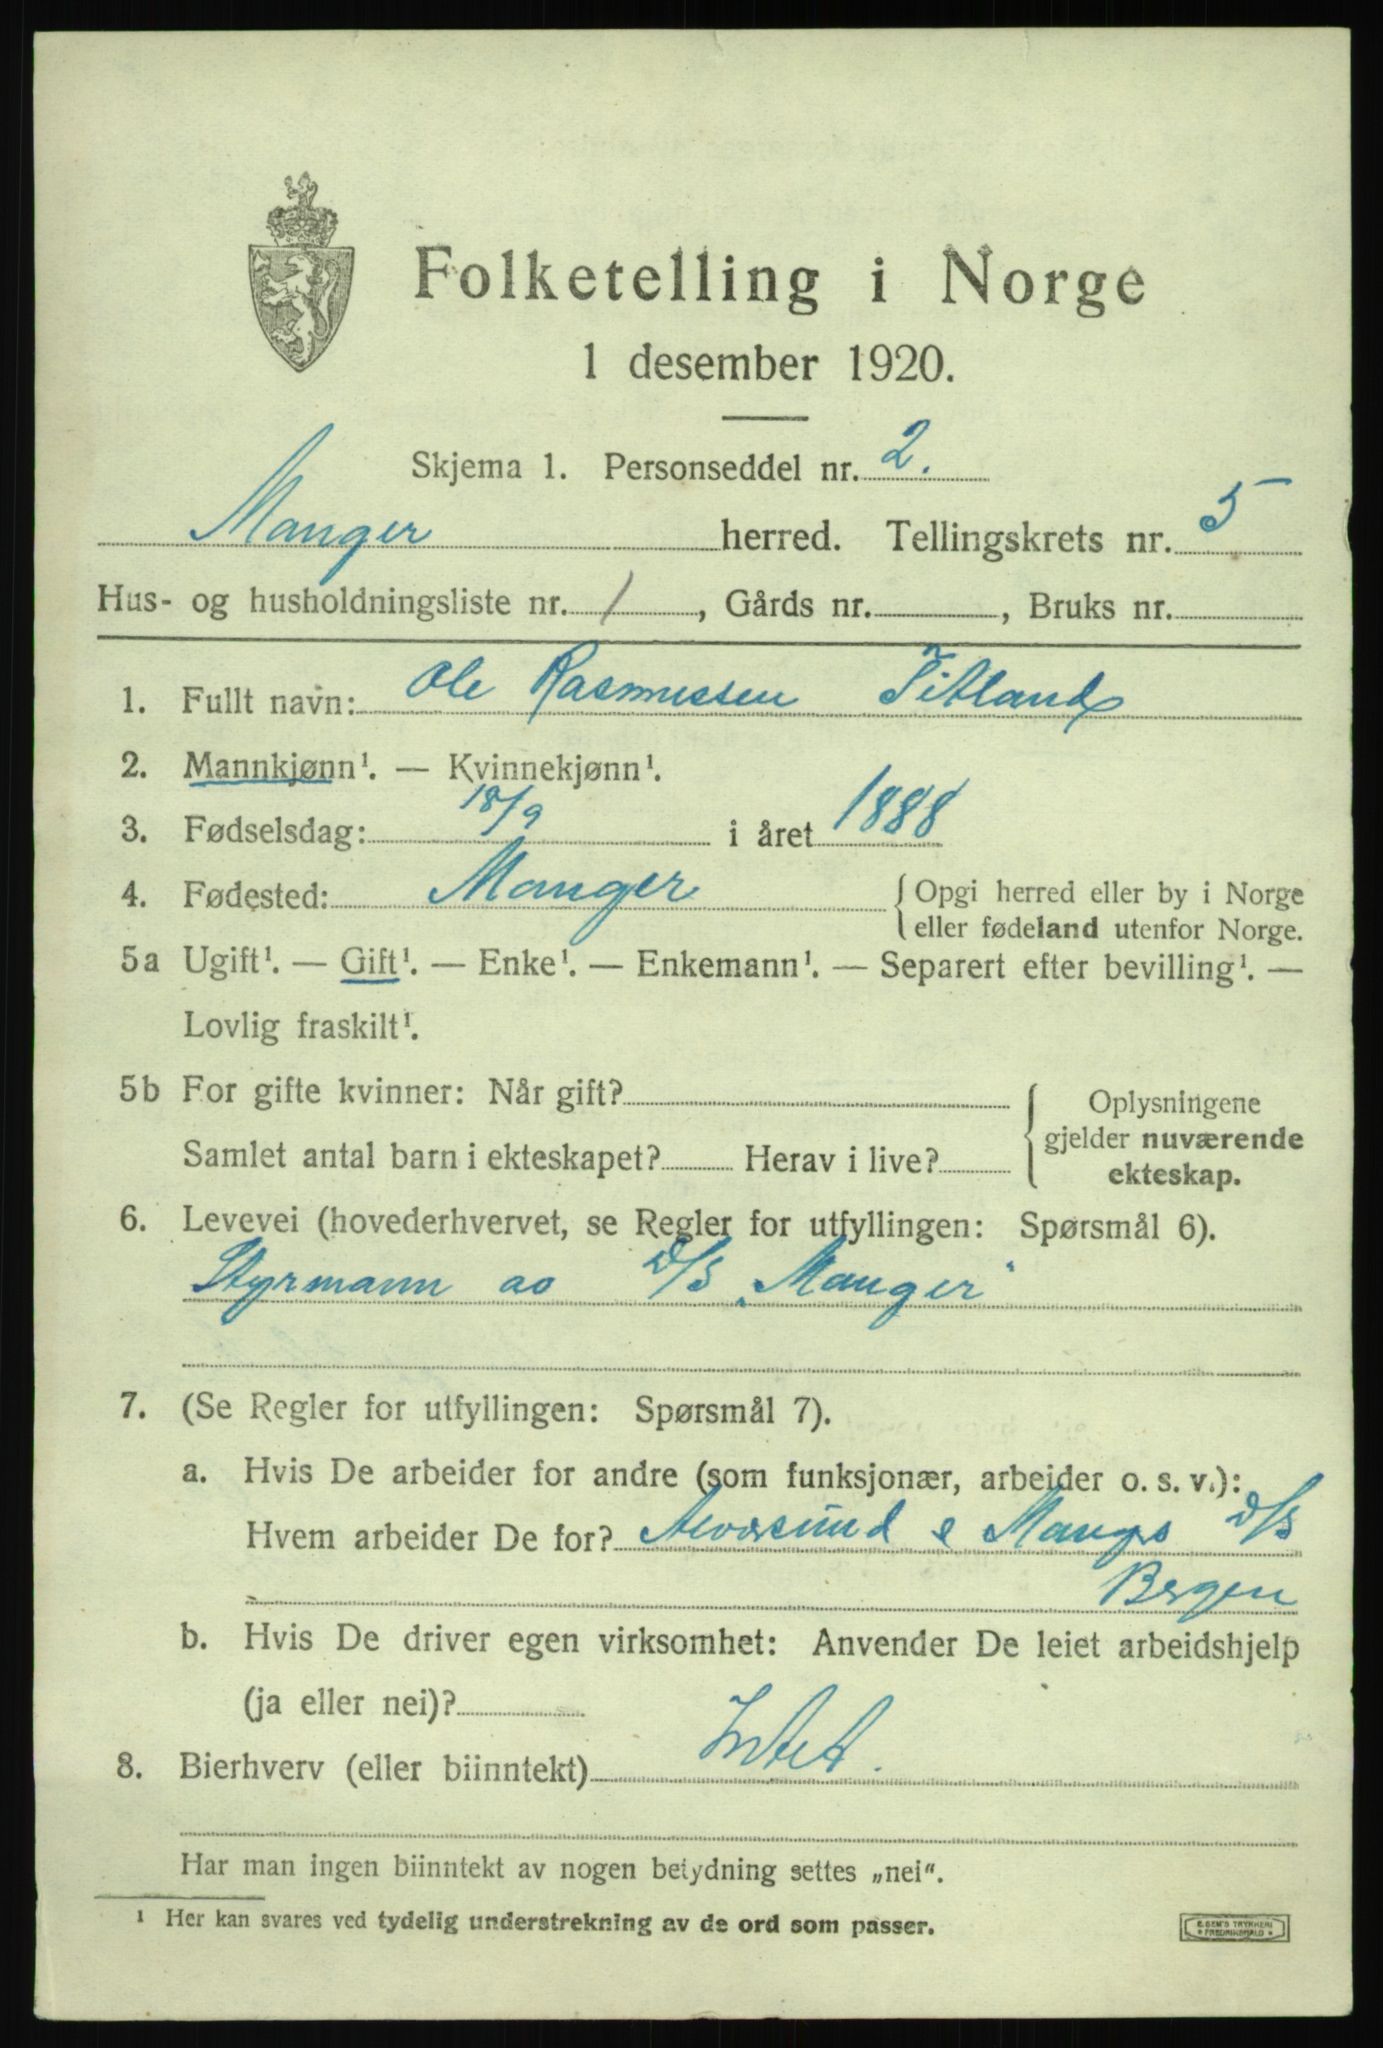 Folketelling i Norge
1 desember 1920.
Skjema 1. Personseddel nr. 2.
Manger herred. Tellingskrets nr. 5
Hus- og husholdningsliste nr. 1, Gårds nr. , Bruks nr.
1. Fullt navn: Ole Rasmussen Titland
2. Mannkjønn¹. — Kvinnekjønn¹.
3. Fødselsdag: 18/9 i året 1888
4. Fødested: Manger { Opgi herred eller by i Norge
eller fødeland utenfor Norge.
5a Ugift¹. — Gift¹. — Enke¹. — Enkemann¹. — Separert efter bevilling¹. —
Lovlig fraskilt¹.
5b For gifte kvinner: Når gift?
Samlet antal barn i ekteskapet? Herav i live?
Oplysningene
gjelder nuværende
ekteskap.
6. Levevei (hovederhvervet, se Regler for utfyllingen: Spørsmål 6).
Styrmann av D/S „Manger"
7. (Se Regler for utfyllingen: Spørsmål 7).
a. Hvis De arbeider for andre (som funksjonær, arbeider o. s. v.):
Hvem arbeider De for? D/S
Bergen
b. Hvis De driver egen virksomhet: Anvender De leiet arbeidshjelp
(ja eller nei)?
8. Bierhverv (eller biinntekt) Intet.
Har man ingen biinntekt av nogen betydning settes „nei".
¹ Her kan svares ved tydelig understrekning av de ord som passer.
E. SEM'S TRYKKERI
* FREDRIKSHALD *